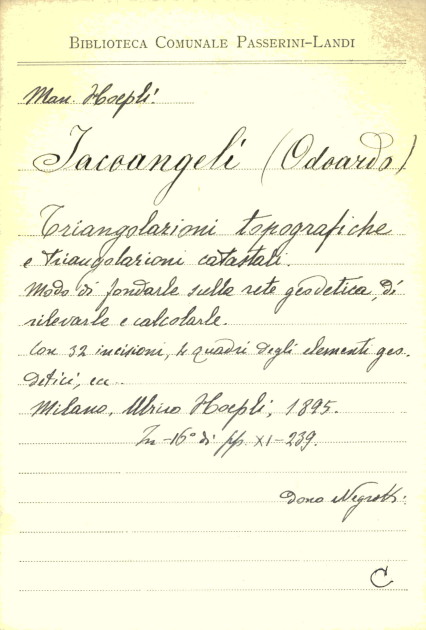 BIBLIOTECA COMUNALE PASSERINI-LANDI
Man. Hoepli.
Jacoangeli (Odoardo)
Triangolazioni topografiche
e triangolazioni catastali.
Modo di fondarle sulla rete geodetica, di
rilevarle e calcolarle.
Con 32 incisioni, 4 quadri degli elementi geo-
detici, ecc.
Milano, Ulrico Hoepli, 1895.
In-16° di pp. XI-239.
dono Negrotti.
C